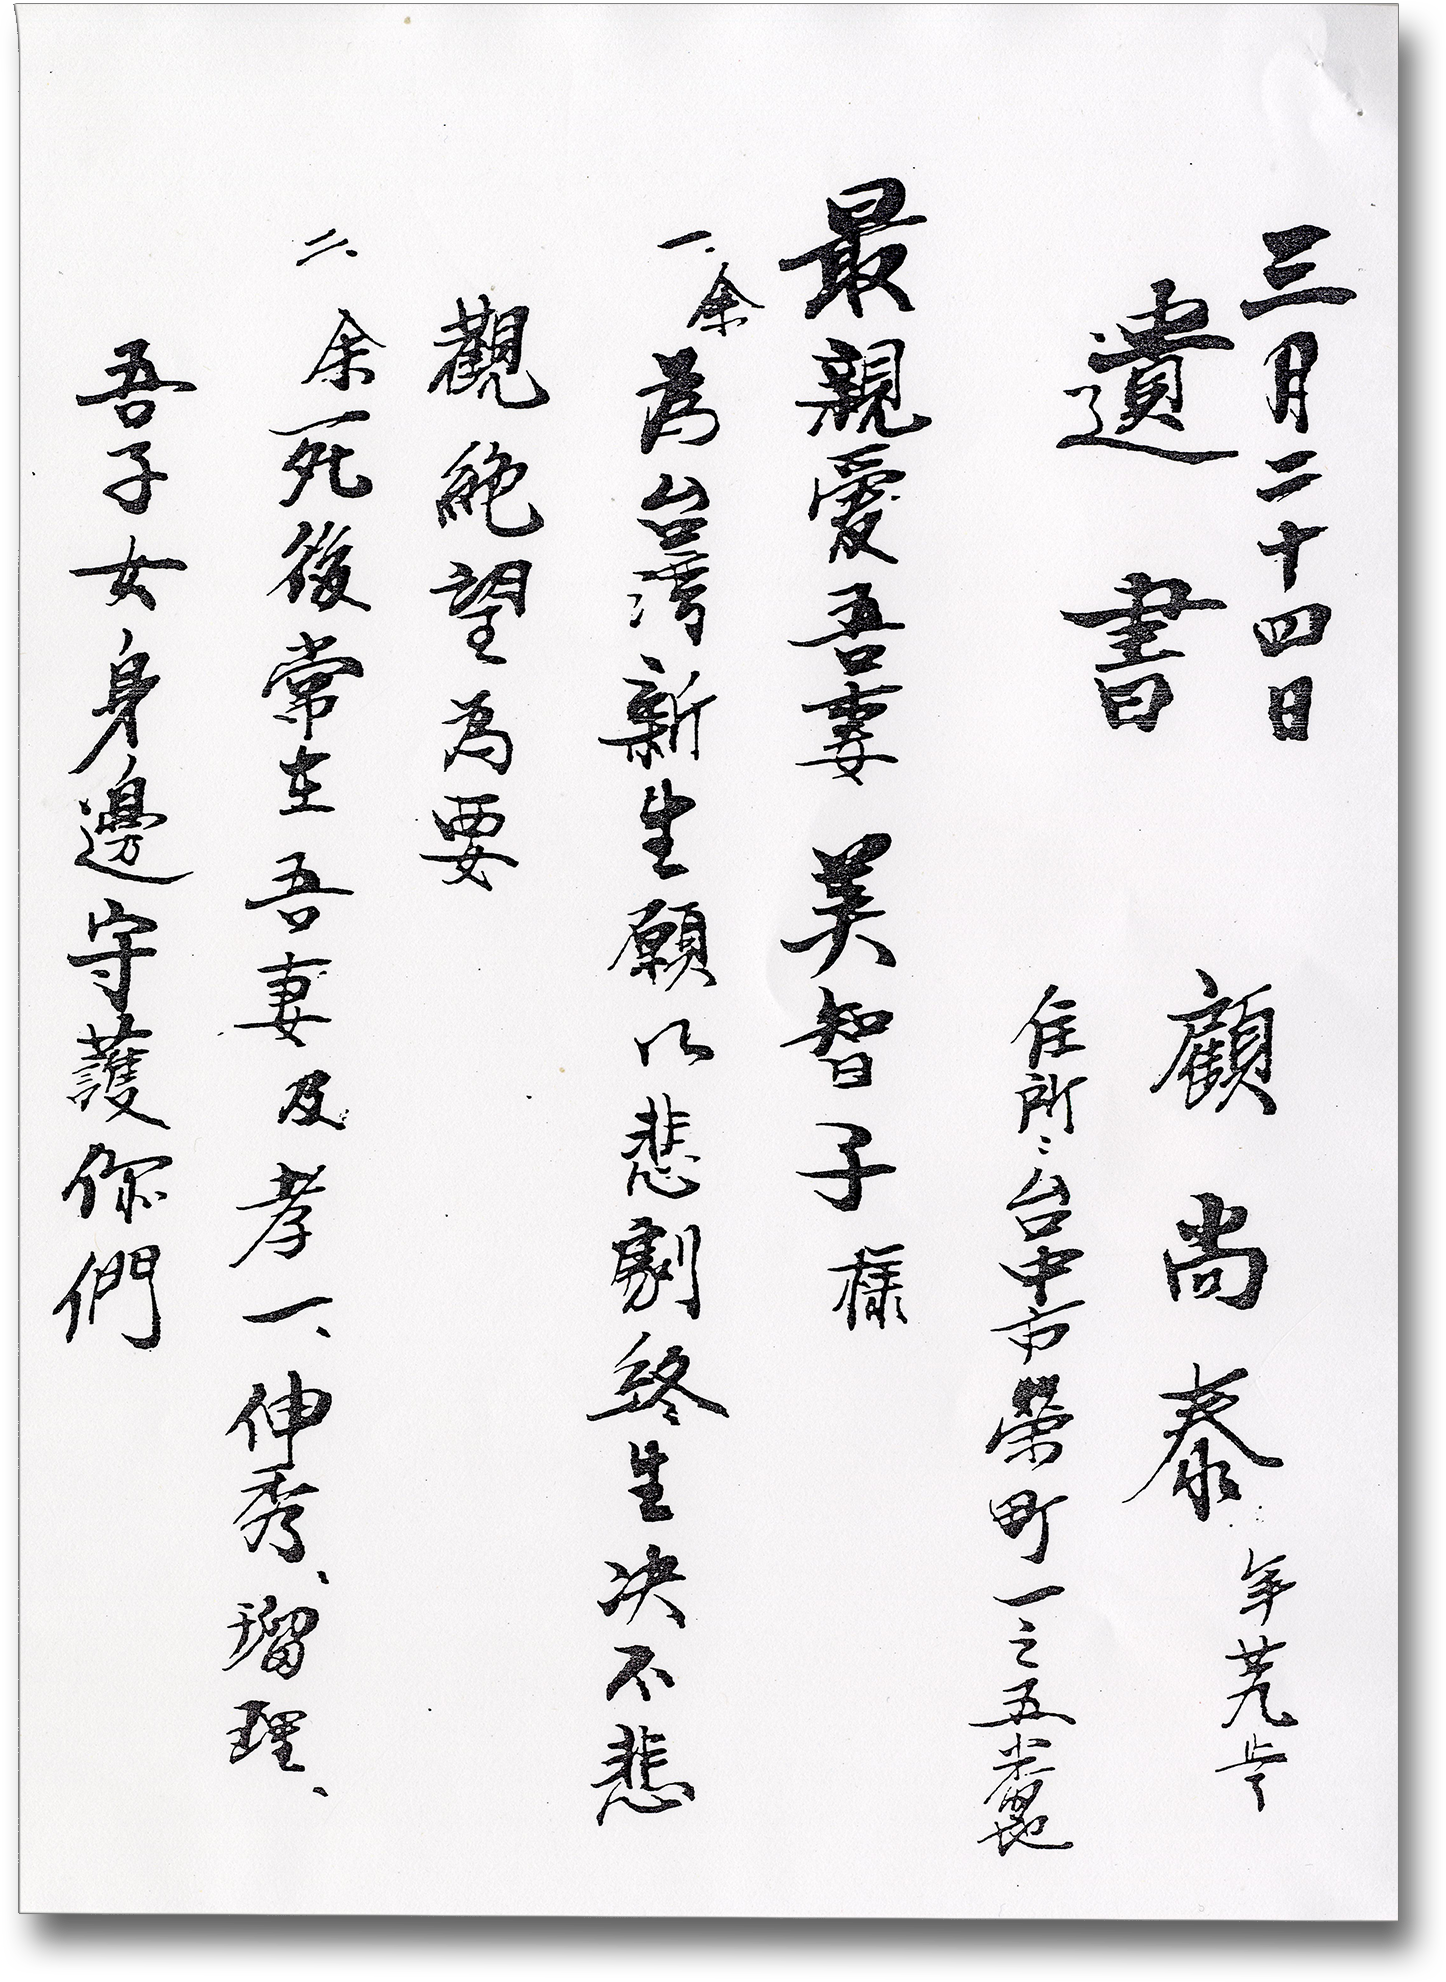 三月二十四日
遺書
顧尚泰 年廿九才
住所：台中市榮町一之五番地
最親愛吾妻美智子様
一、余為台灣新生願以悲劇終生決不悲
觀絶望為要
二、余死後常在吾妻及孝一、伸秀、瑠理、
吾子女身邊守護你們